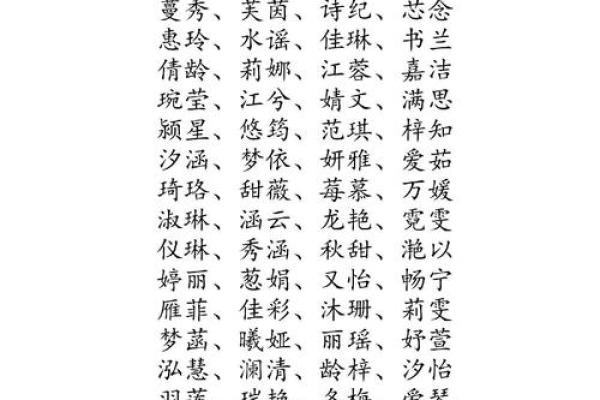 蔓秀、芙茵、诗纪、芯念
惠玲、水谣、佳琳、书兰
倩龄、莉娜、江蓉、嘉洁
琬莹、江兮、婧文、满思
颍星、悠筠、范琪、梓知
汐涵、梦依、妍雅、爱茹
琦珞、甜薇、莓慕、万媛
淑琳、涵云、龙艳、霓雯
仪琳、秀涵、秋甜、滟以
婷丽、葱娟、又怡、畅宁
雁菲、佳彩、沐珊、莉雯
梦菡、曦娅、丽瑶、妤萱
泓慧、澜清、龄梓、汐怡